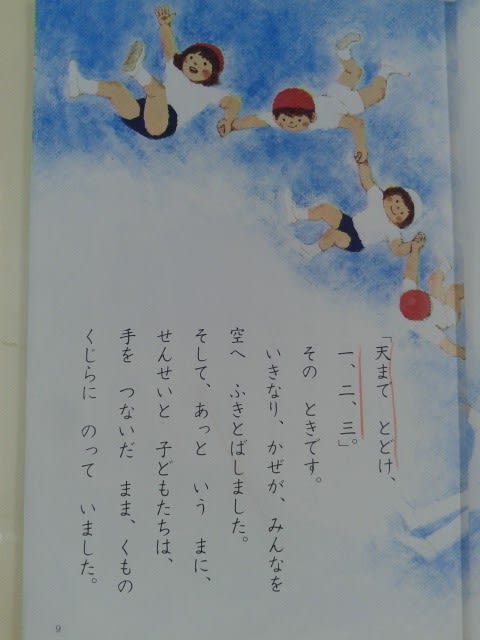 「天まで　とどけ、
一、二、三」。
その　ときです。
いきなり、かぜが、みんなを
空へ　ふきとばしました。
そして、あっと　いう　まに、
せんせいと　子どもたちは、
手を　つないだ　まま、くもの
くじらに　のって　いました。
9